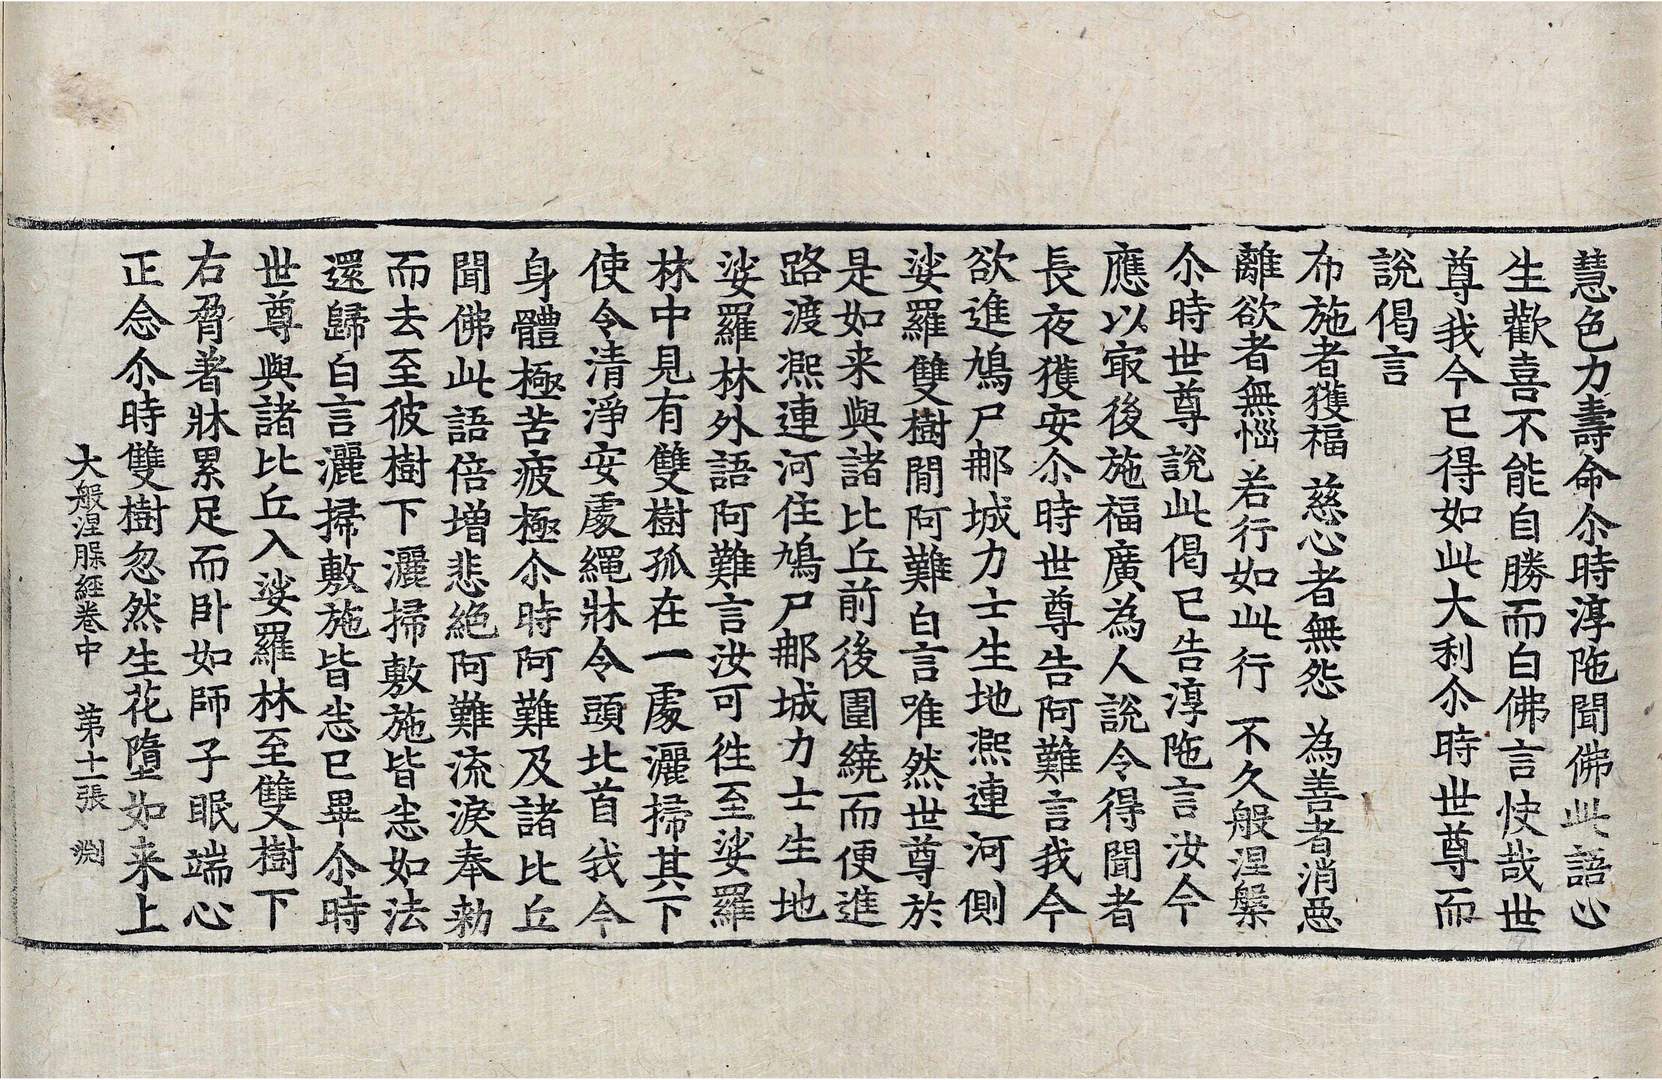 慧色力壽命尒時淳陁聞佛此語心
生歡喜不能自勝而白佛言快㢤世
尊我今已得如此大利尒時世尊而
說偈言
布施者獲福 慈心者無怨 為善者消惡
離欲者無惱 若行如此行 不久般涅槃
尒時世尊說此偈已告淳陁言汝今
應以㝡後施福廣為人說令得聞者
長夜獲安尒時世尊告阿難言我今
欲進鳩尸那城力士生地凞連河側
娑羅雙樹間阿難白言唯然世尊於
是如来與諸比丘前後圍繞而便進
路渡凞連河住鳩尸那城力士生地
娑羅林外語阿難言汝可徃至娑羅
林中見有雙樹孤在一處灑掃其下
使令清淨安處繩牀令頭北首我今
身體極苦疲極尒時阿難及諸比丘
聞佛此語倍增悲絶阿難流淚奉勑
而去至彼樹下灑掃敷施皆悉如法
還歸白言灑掃敷施皆悉已畢尒時
世尊與諸比丘入娑羅林至雙樹下
右脅著牀累足而卧如師子眠端心
正念尒時雙樹忽然生花墮如来上
大般涅槃經卷中 第十一張 渕